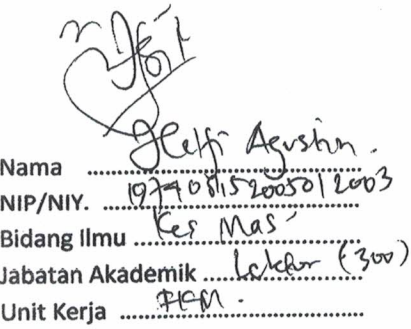 Nama Helfi Agustin.
NIP/NIY. 197408152005012003
Bidang Ilmu Kes Mas
Jabatan Akademik Lektor (300)
Unit Kerja FKM.